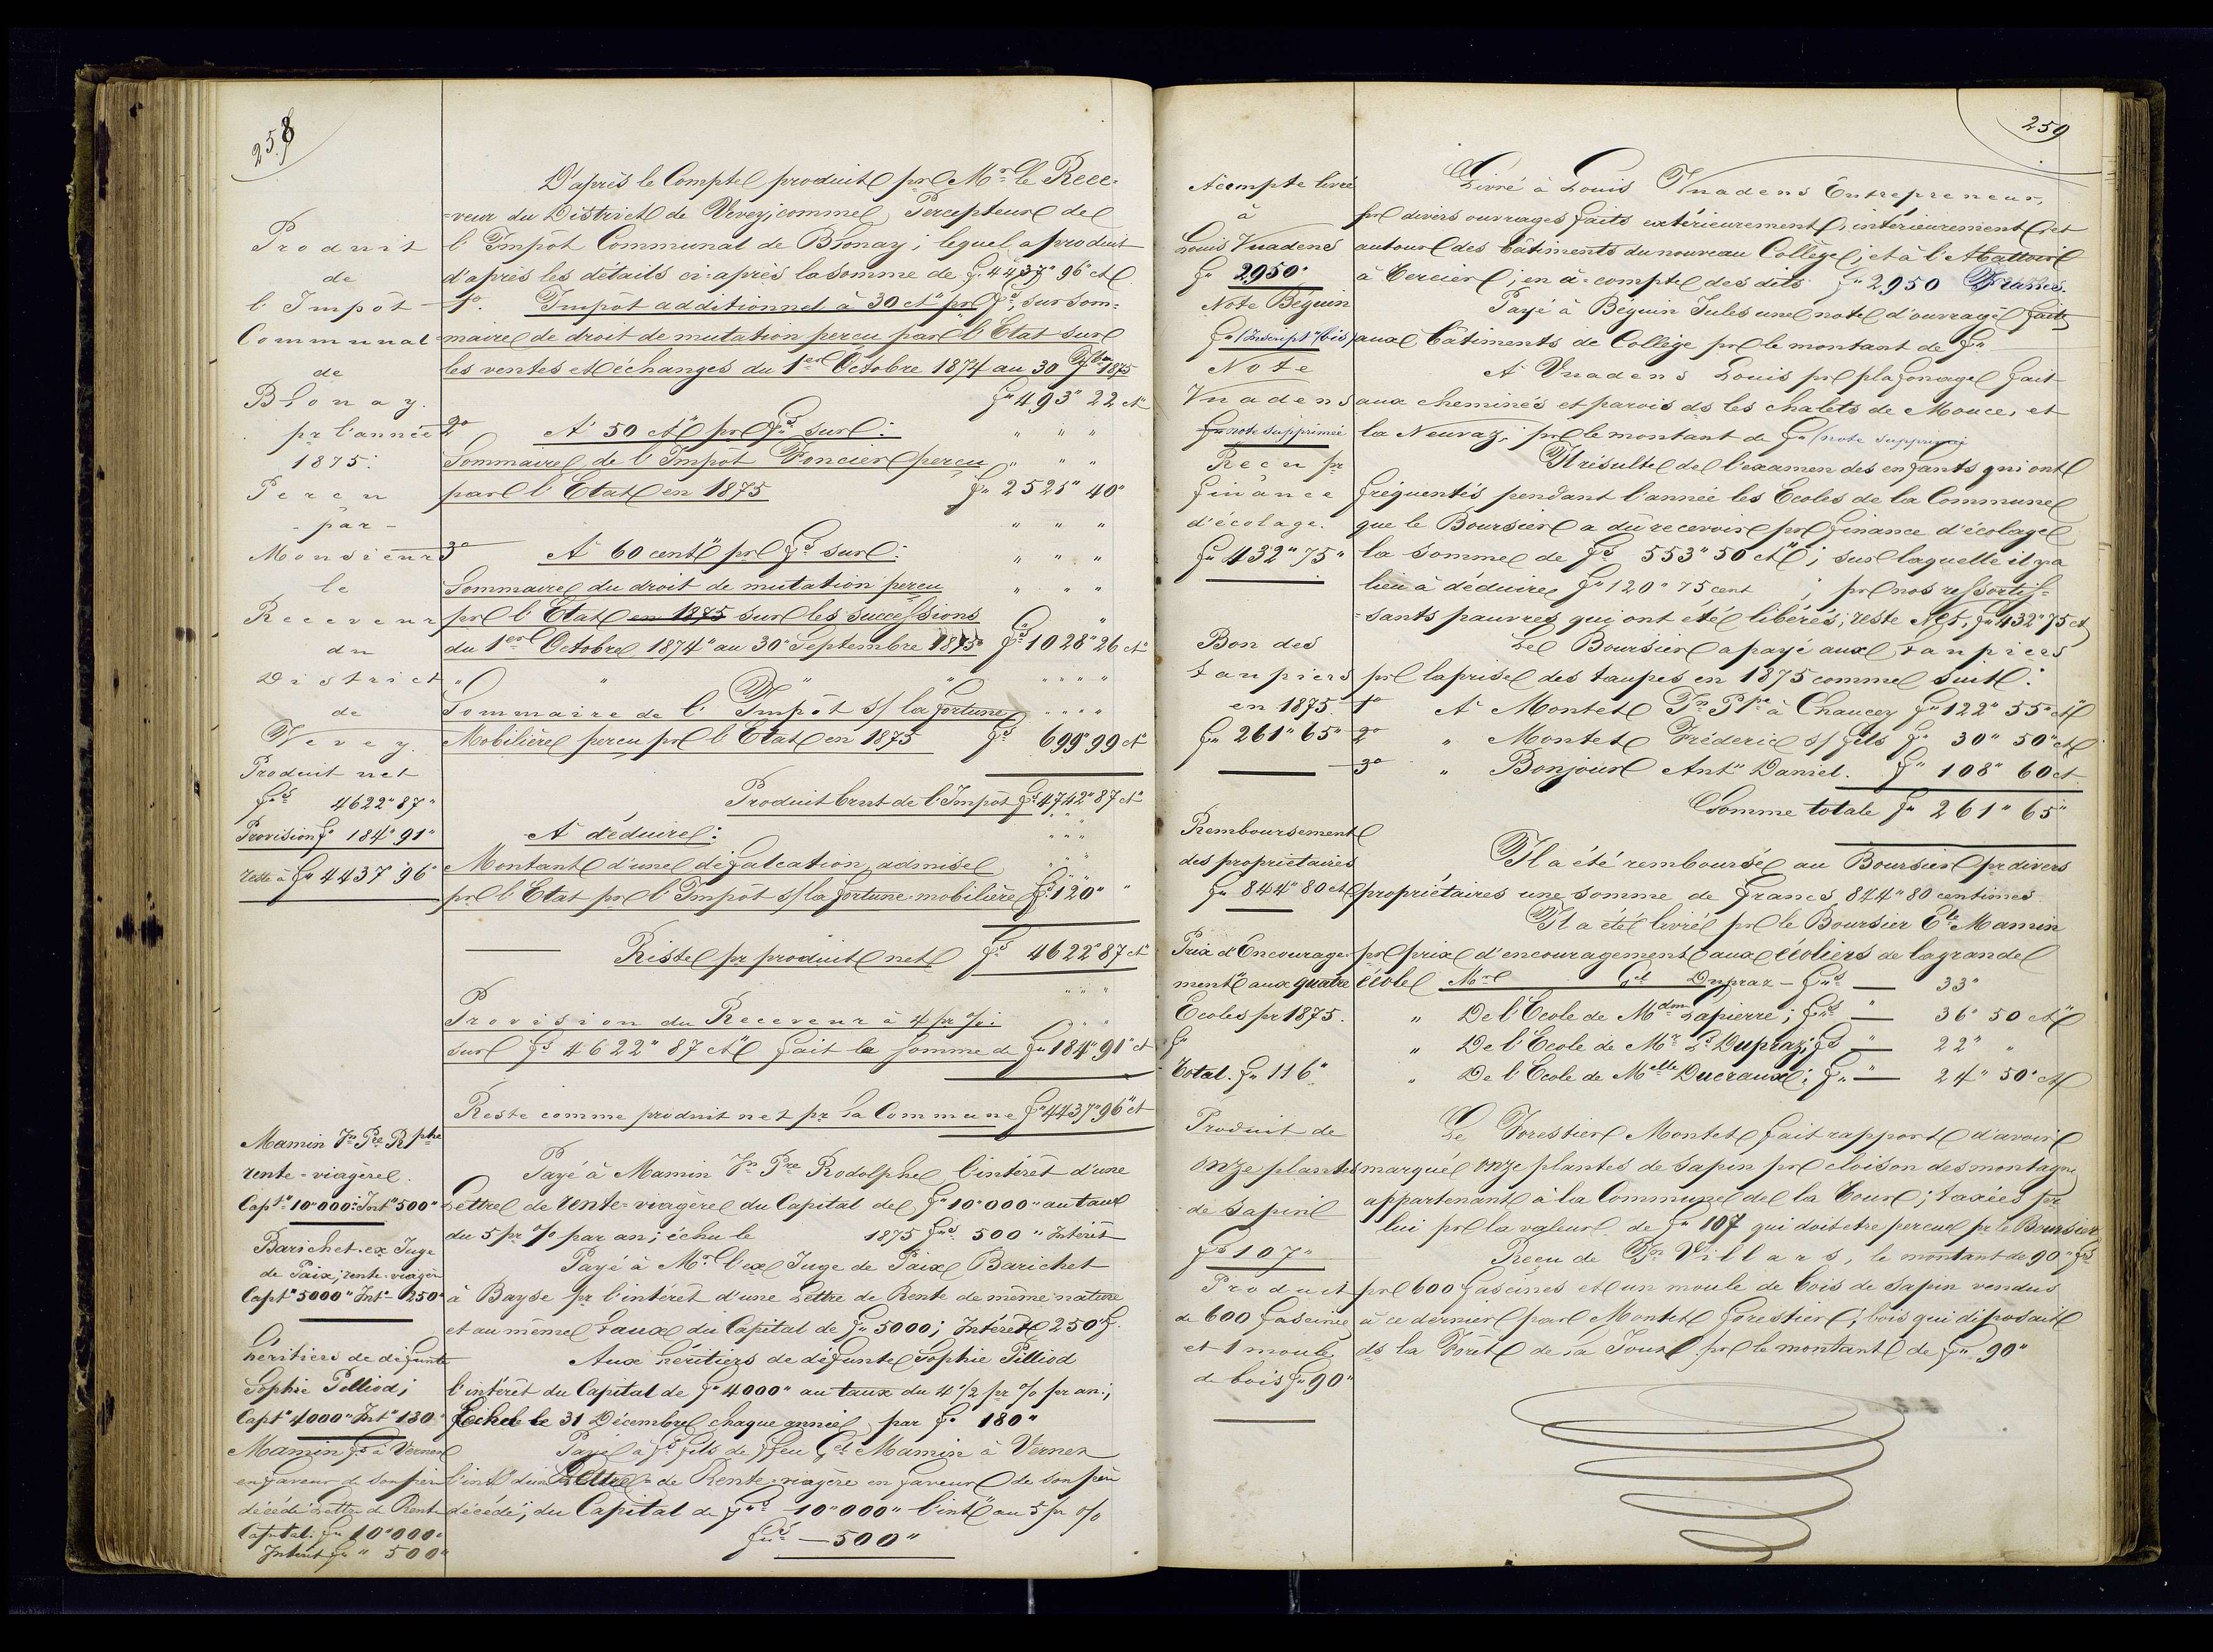 258
D'après le Compte produit pr Mr le Rece-
Produit
de
l'Impôt
Communal
de
Blonay.
pr l'année
1875.
Percu
- par -
Monsieur
le
Receveur
du
District
de
Vevey.
Produit net
frs 4622" 87"
Provision f" 184" 91"
reste à f" 4437" 96"
=veur du District de Vevey, comme Percepteur de
l'Impôt Communal de Blonay; lequel a produit
d'après les détails ci-après la somme de f" 4437" 96" ct
1o. Impôt additionnel à 30 cts pr fr, sur som-
maire de droit de mutation percu par l'Etat sur
les ventes et échanges du 1er Octobre 1874 au 30 7bre 1875
f" 493" 22 ct
2o A 50 cts pr fr sur:
Sommaire de l'Impôt Foncier percu
par l'Etat en 1875 f" 2525" 40"
3o A 60 cent" pr fr sur:
Sommaire du droit de mutation percu
pr l'Etat en 1875 sur les successions
du 1er Octobre 1874" au 30" Septembre 1875" frs 1028" 26 ct
Sommaire de l'Impôt s/ la fortune
Mobilière percu pr l'Etat en 1875 frs 699" 99 ct
Produit brut de l'Impôt frs 4742" 87 ct
A déduire:
Montant d'une défalcation, admise
pr l'Etat pr l'Impôt s/ la fortune mobilière frs 120"
Riste pr produit net frs 4622" 87 ct
Provision du Receveur à 4 pr %:
sur frs 4622" 87 cts fait la somme de f" 184" 91" ct
Reste comme produit net pr la Commune f" 4437" 96" ct
Mamin Jn Pre Rphe
rente-viagère.
Capt" 10"000: Int" 500"
Payé à Mamin Jn Pre Rodolphe l'intérêt d'une
Lettre de rente-viagère du Capital de f" 10"000" au taux
du 5 pr % par an; échu le 1875 frs 500" Intérêt
Barichet ex Juge
de Paix; rente-viagère
Capt" 5000" Int" 250"
Payé à Mr l'ex Juge de Paix Barichet
à Bayse pr l'intérêt d'une Lettre de Rente de même nature
et au même taux du Capital de f" 5000; Intérêt 250" f.
héritiers de défunte
Sophie Pilliod;
Capt" 4000" Int" 180"
Aux héritiers de défunte Sophie Pilliod
l'intérêt du Capital de f" 4000" au taux du 4 1/2 pr % pr an.;
Echu le 31 Décembre chaque année, par f" 180"
Mamin fs à Vernex
en faveur de son père
décédé Lettre de Rente
Capital. f" 10"000"
Intérêt f" " 500"
Payé à fs fils de ffeu Gl Mamin à Vernex
l'int" d'une Lettre de Rente-viagère en faveur de son père
décédé; du Capital de frs 10"000" l'int" au 5 pr %
frs — 500"
259
Acompte livré
à
Louis Vuadens
f" 2950"
Livré à Louis Vuadens Entrepreneur,
pr divers ouvrages faits extérieurement, intérieurement, et
autour des bâtiments du nouveau Collège, et à l'Abattoir
à Tercier; en à-compte des dits f" 2950 Francs.
Note Béguin
f" (Inscript" bis)
Payé à Béguin Jules une note d'ouvrage fait
aux bâtiments de Collège pr le montant de f"
Note
Vuadens
f" note supprimée
A Vuadens Louis pr plafonage fait
aux cheminés et parois ds les chalets de Mouce, et
la Neuvaz; pr le montant de f" (note supprimé
Recu pr
finance
d'écolage.
f" 432" 75"
Il résulte de l'examen des enfants qui ont
fréquentés pendant l'année les Ecoles de la Commune
que le Boursier a dû recevoir pr finance d'écolage
la somme de frs 553" 50 cts; sur laquelle il y a
lieu à déduire f" 120" 75 cent; pr nos ressortis-
=sants pauvres qui ont été libérés; reste Net, f" 432" 75 ct
Bon des
taupiers
en 1875
f" 261" 65"
Le Boursier a payé aux taupiers
pr la prise des taupes en 1875 comme suit:
1o A Montet Jn Ppe à Chaucey f" 122" 55" cts
2o " Montet Fréderic s/ fils f" 30" 50" ct
3o " Bonjour Ant" Daniel. f" 108" 60 ct
Somme totale f" 261" 65"
Remboursement
des propriétaires
f" 844" 80 ct
Il a été remboursée au Boursier pr divers
propriétaires une somme de francs 844" 80 centimes
Prix d'Encourage-
ment aux quatre
Ecoles pr 1875.
f"
Total. f" 116"
Il a été livré pr le Boursier Ete Mamin
pr prix d'encouragement aux écoliers de la grande
école Mr Gl Dupraz - frs — 33"
" De l'Ecole de Mdme Lapierre; frs " — 36" 50 cts
" De l'Ecole de Mr Ls Dupraz; fs " — 22" "
" De l'Ecole de Melle Ducraux; f" " — 24" 50" ct
Produit de
onze plantes
de Sapin
frs 107"
Le Forestier Montet fait rapport d'avoir
marqué onze plantes de sapin pr cloison des montagne
appartenant à la Commune de la Tour; taxées pr
lui pr la valeur de f" 107 qui doit etre percue pr le Boursier
Produit
de 600 fascine
et 1 moule
de bois f" 90"
Recu de Fn Villars, le montant de 90" frs
pr 600 fascines et un moule de bois de sapin vendus
à ce dernier par Montet forestier; bois qui diposait
ds la Forêt de la Joux pr le montant de f" 90"